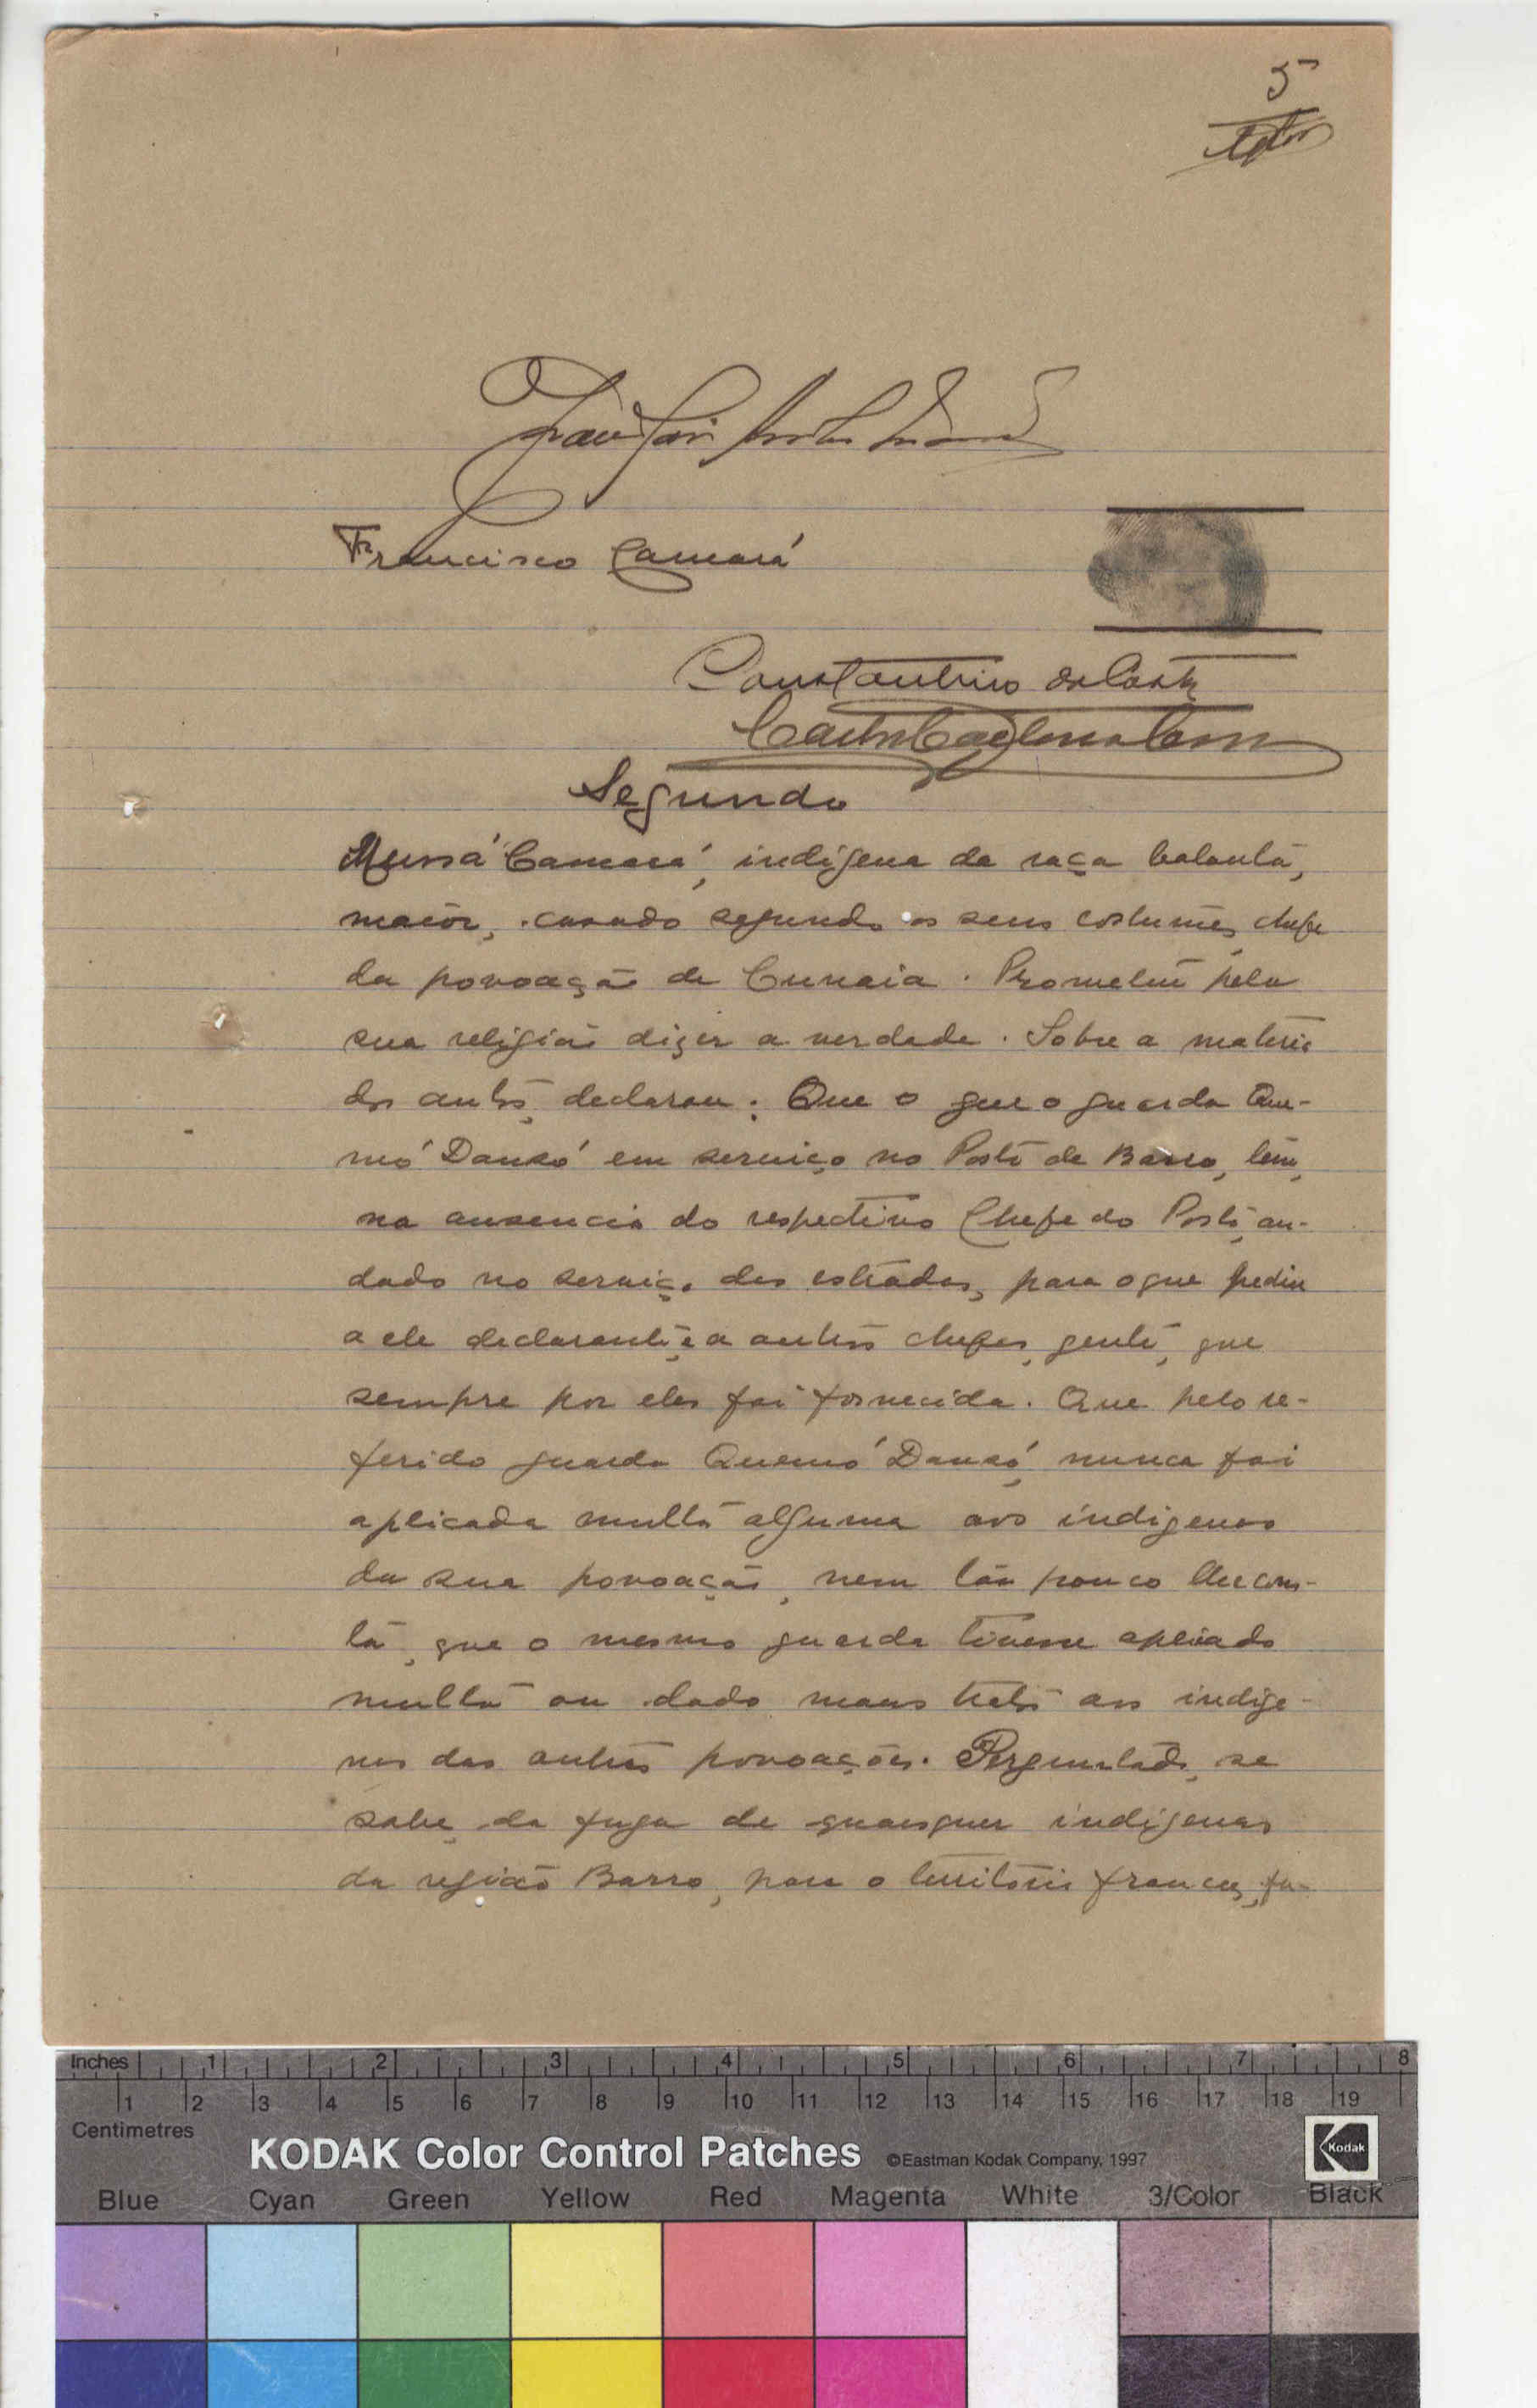 5
Francisco Camará
Constantino da Costa
Segundo
Mussá Camará, indigena da raça balanta,
maior, casado segundo os seus costumes, chefe
da povoação de Cunaia. Prometeu pela
sua religião dizer a verdade. Sobre a materia
dos autos, declarou: Que o que o guarda Que-
mó Dansó em serviço no Posto de Barro, tem,
na ausencia do respectivo Chefe do Posto, an-
dado no serviço das estradas, para o que pediu
a ele declarante, e a outros chefes, gente, que
sempre por eles foi fornecida. Que pelo re-
ferido guarda Quemó Dansó, nunca foi
aplicada multa alguma aos indigenas
da sua povoação, nem tão pouco lhe cons-
ta, que o mesmo guarda tivesse aplicado
multa ou dado maus tratos aos indige-
nas das outras povoações. Perguntado, se
sabe da fuga de quaesquer indigenas
da região Barro, para o territorio francez, fu-
Inches 1 2 3 4 5 6 7 8
1 2 3 4 5 6 7 8 9 10 11 12 13 14 15 16 17 18 19
Centimetres
KODAK Color Control Patches ©Eastman Kodak Company, 1997 Kodak
Blue Cyan Green Yellow Red Magenta White 3/Color Black